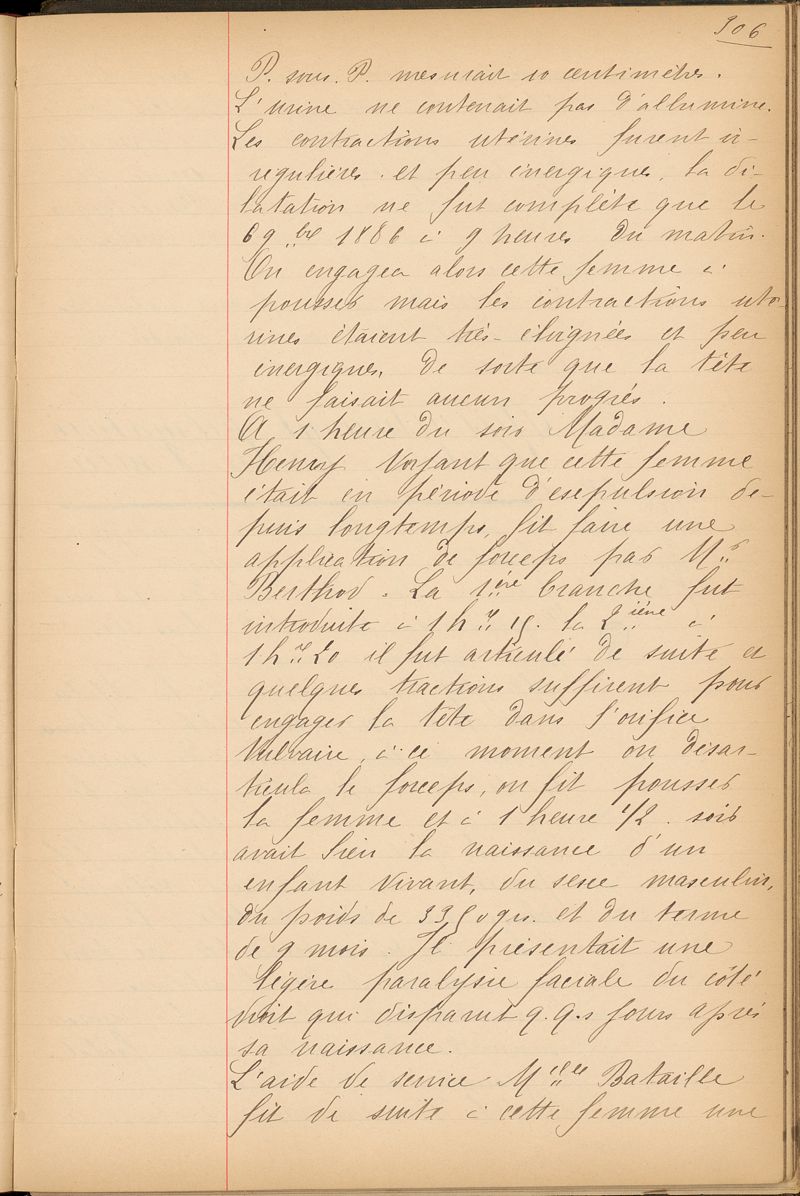 906
P. sous. P. mesurait 10 centimètres.
L'urine ne contenait pas d'allumine.
Les contractions utérines furent ir-
régulières. et peu énergiques, la di-
latation ne fut complète que le
6 9bre 1886 à 9 heures du matin.
On engagea alors cette femme à
pousser mais les contractions uté-
rines étaient très-éloignées et peu
énergiques. De sorte que la tête
ne faisait aucun progrès.
A 1 heure du soir Madame
Henry voyant que cette femme
était en période d'esepulsion de-
puis longtemps, fit faire une
application de forceps par Mr
Berthod. La 1ère branche fut
introduite à 1h re 15. la 2ième à
1h re 20 il fut articulé de suite et
quelques tractions suffirent pour
engager la tête dans l'orifice
vulvaire, à ce moment on désar-
ticula le forceps, on fit pousser
la femme et à 1 heure 1/2. soir
avait lieu la naissance d'un
enfant vivant, du sexe masculin,
du poids de 3350 grs. et du terme
de 9 mois. Il présentait une
légère paralysie faciale du côté
droit qui disparut q.q.s jours après
sa naissance.
L'aide de service Melle Bataille
fit de suite à cette femme une